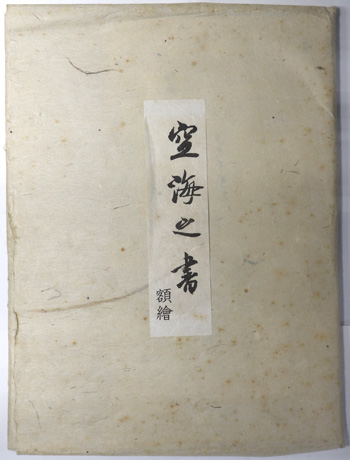 空海之書
額繪